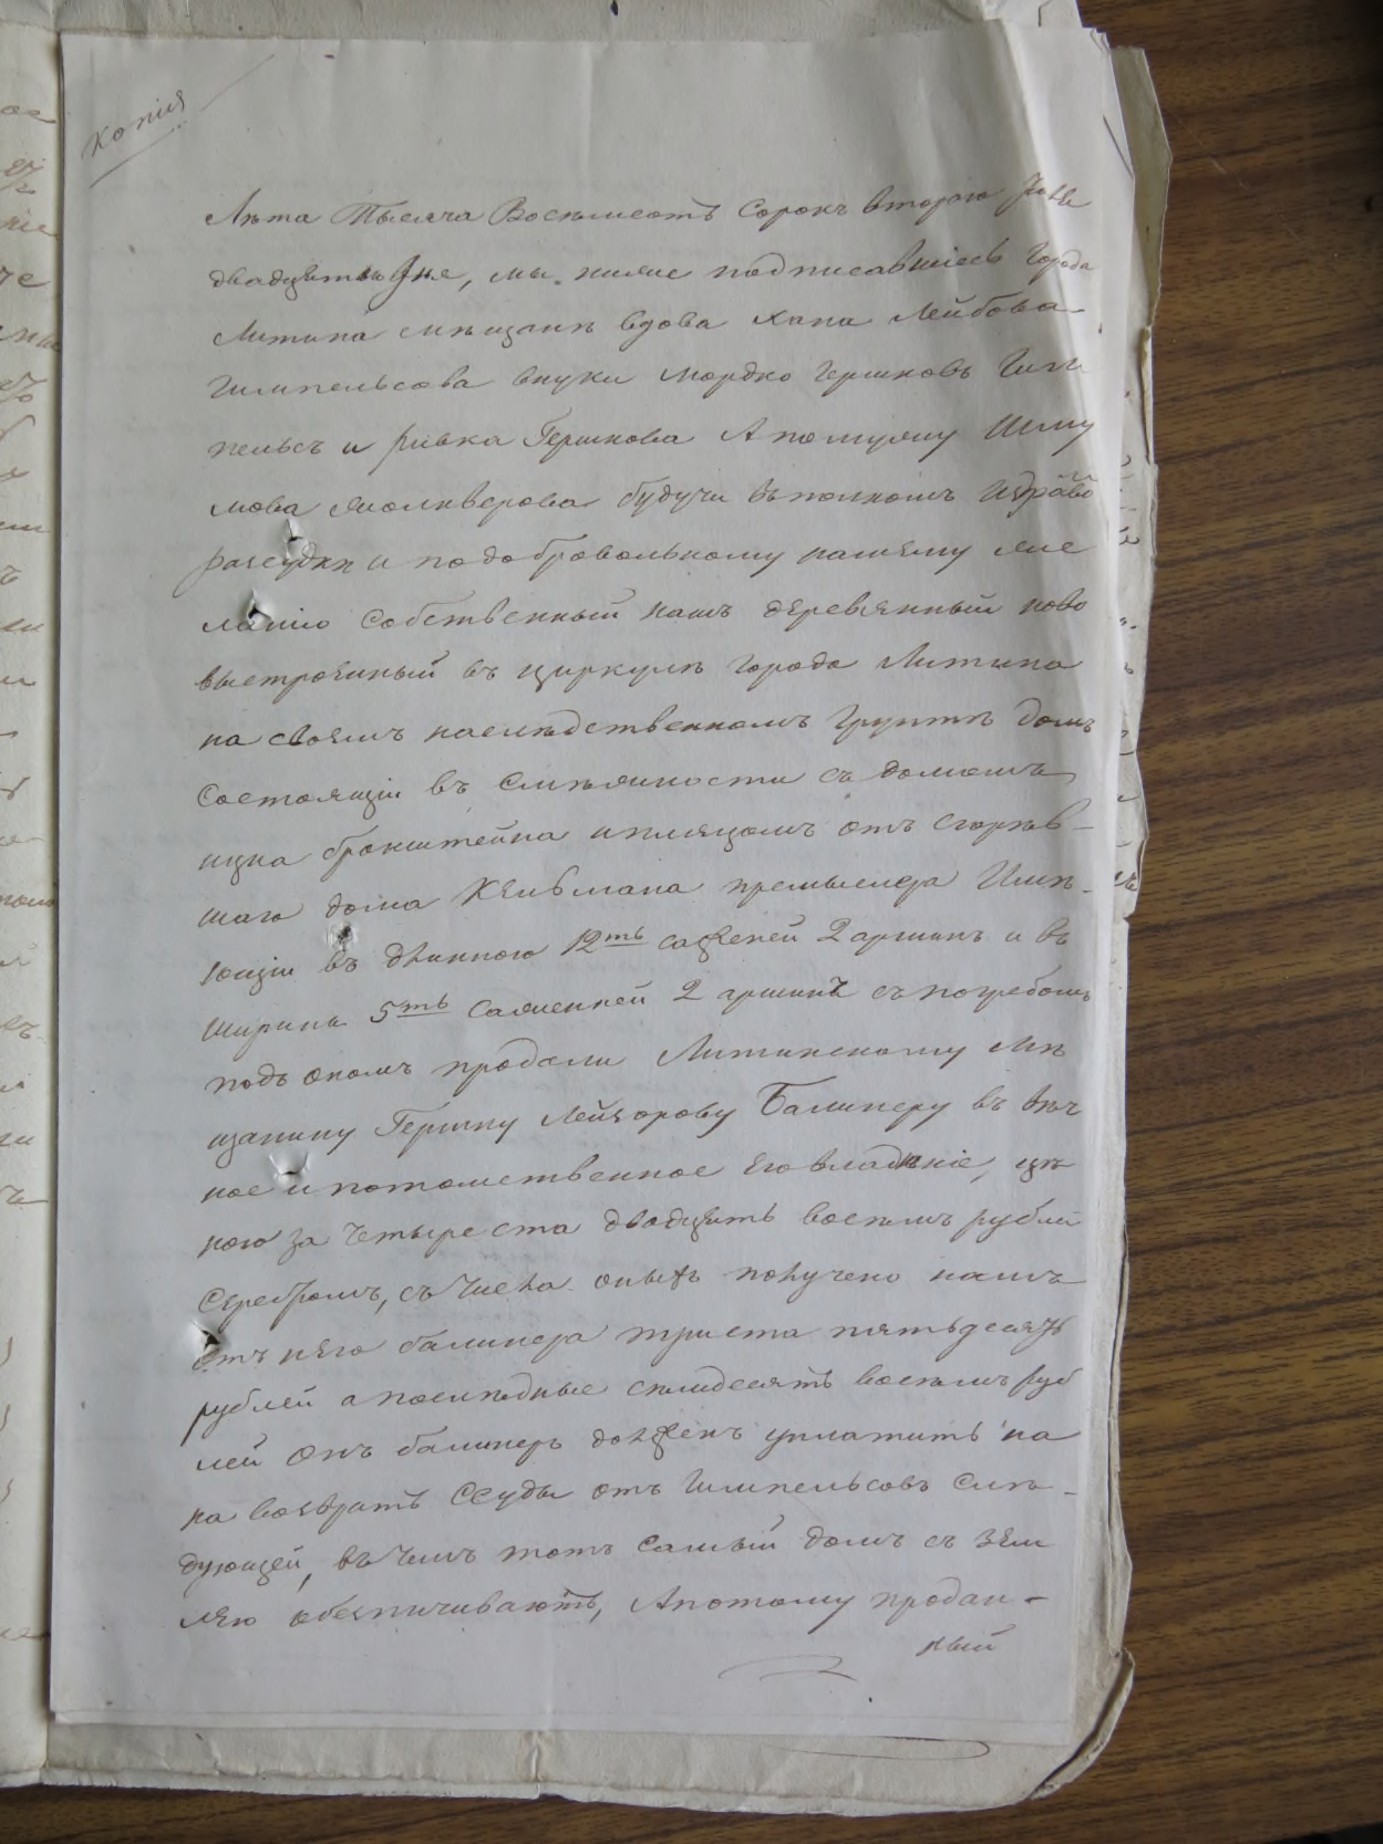 Копія
Лѣта Тысяча Восемьсотъ Сорокъ втораго
двадцатаго Дня, мы ниже подписавшіесь Города
Литина мѣщане вдова Хана Лейбова
Гимпельсова внуки Мордко Гершковъ Гим
пельсъ и Ривка Гершкова Апомужу Шму
лова будучи въ полномъ издраво
разсудки и подобровольному нашему же
ланію Собственный нашъ деревянный ново
выстроеный въ циркулѣ Города Литина
на своемъ наслѣдственномъ Грунтѣ домъ
Состоящіи въ Смѣжности съ домомъ
ицка бронштейна ипляцомъ отъ сгорѣв-
шаго дома Клибмана Имѣ-
ющіи въ длинною 12ть саженей 2 аршинъ и въ
Ширинѣ 5ть Саженней 2 аршинъ съ погребомъ
подъ ономъ продали Литинскому Мѣ
щанину Гершку Лейзорову Балинеру въ вѣч
ное и потомственное Его владѣніе, цѣ
ною за Четыре ста двадцать восемъ рублей
Серебромъ, съ Числа оныхъ получено намъ
отъ него балинера триста пятьдесятъ
рублей а послѣдные семдесятъ восемъ руб
лей Онъ балинеръ долженъ уплатить на
на возвратъ Ссуды отъ Гимпельсовъ Слѣ-
дующей, въ Чемъ тотъ Самый домъ съ Зем
лею обезпичиваютъ, Апотому продан-
ный